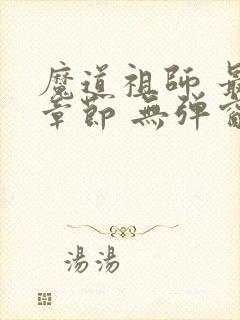 魔道祖師 最
章節 無彈窗
湯湯